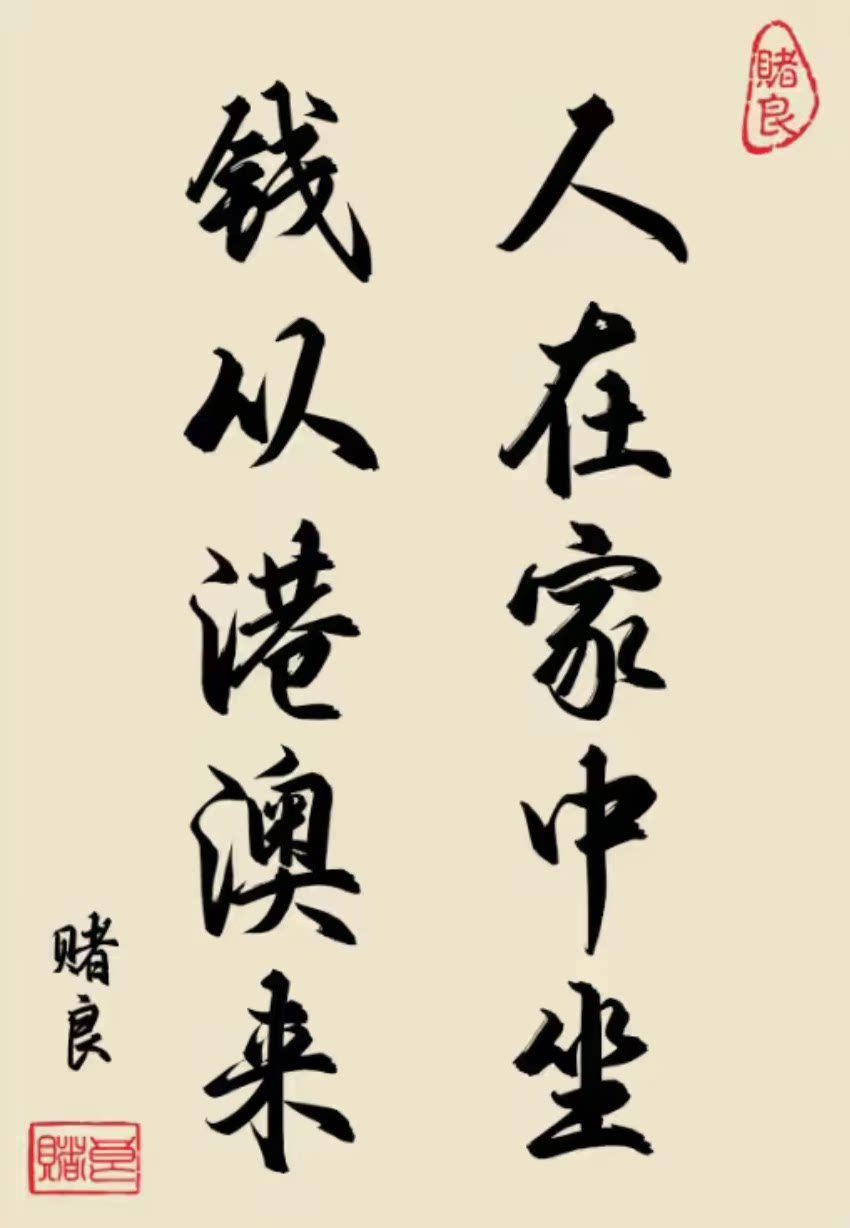 人在家中坐
钱从港澳来
赌良
賭良
賭良